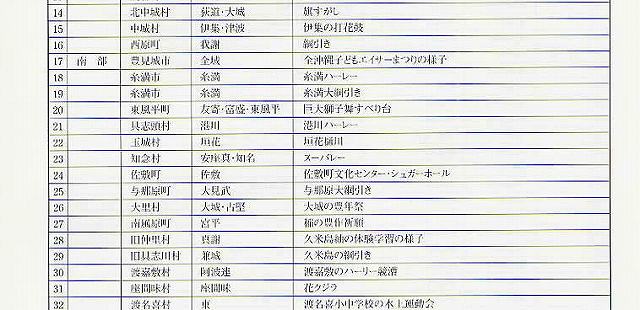 14 北中城村 荻道・大城 旗すがし
15 中城村 伊集・津波 伊集の打花鼓
16 西原町 我謝 綱引き
17 南部 豊見城市 全域 全沖縄子どもエイサーまつりの様子
18 糸満市 糸満 糸満ハーレー
19 糸満市 糸満 糸満大綱引き
20 東風平町 友寄・富盛・東風平 巨大獅子舞すべり台
21 具志頭村 港川 港川ハーレー
22 玉城村 垣花 垣花樋川
23 知念村 安座真・知名 ヌーバレー
24 佐敷町 佐敷 佐敷町文化センター・シュガーホール
25 与那原町 大見武 与那原大綱引き
26 大里村 大城・古堅 大城の豊年祭
27 南風原町 宮平 稲の豊作祈願
28 旧仲里村 真謝 久米島紬の体験学習の様子
29 旧具志川村 兼城 久米島の綱引き
30 渡嘉敷村 阿波連 渡嘉敷のハーリー競漕
31 座間味村 座間味 花クジラ
32 渡名喜村 東 渡名喜小中学校の水上運動会